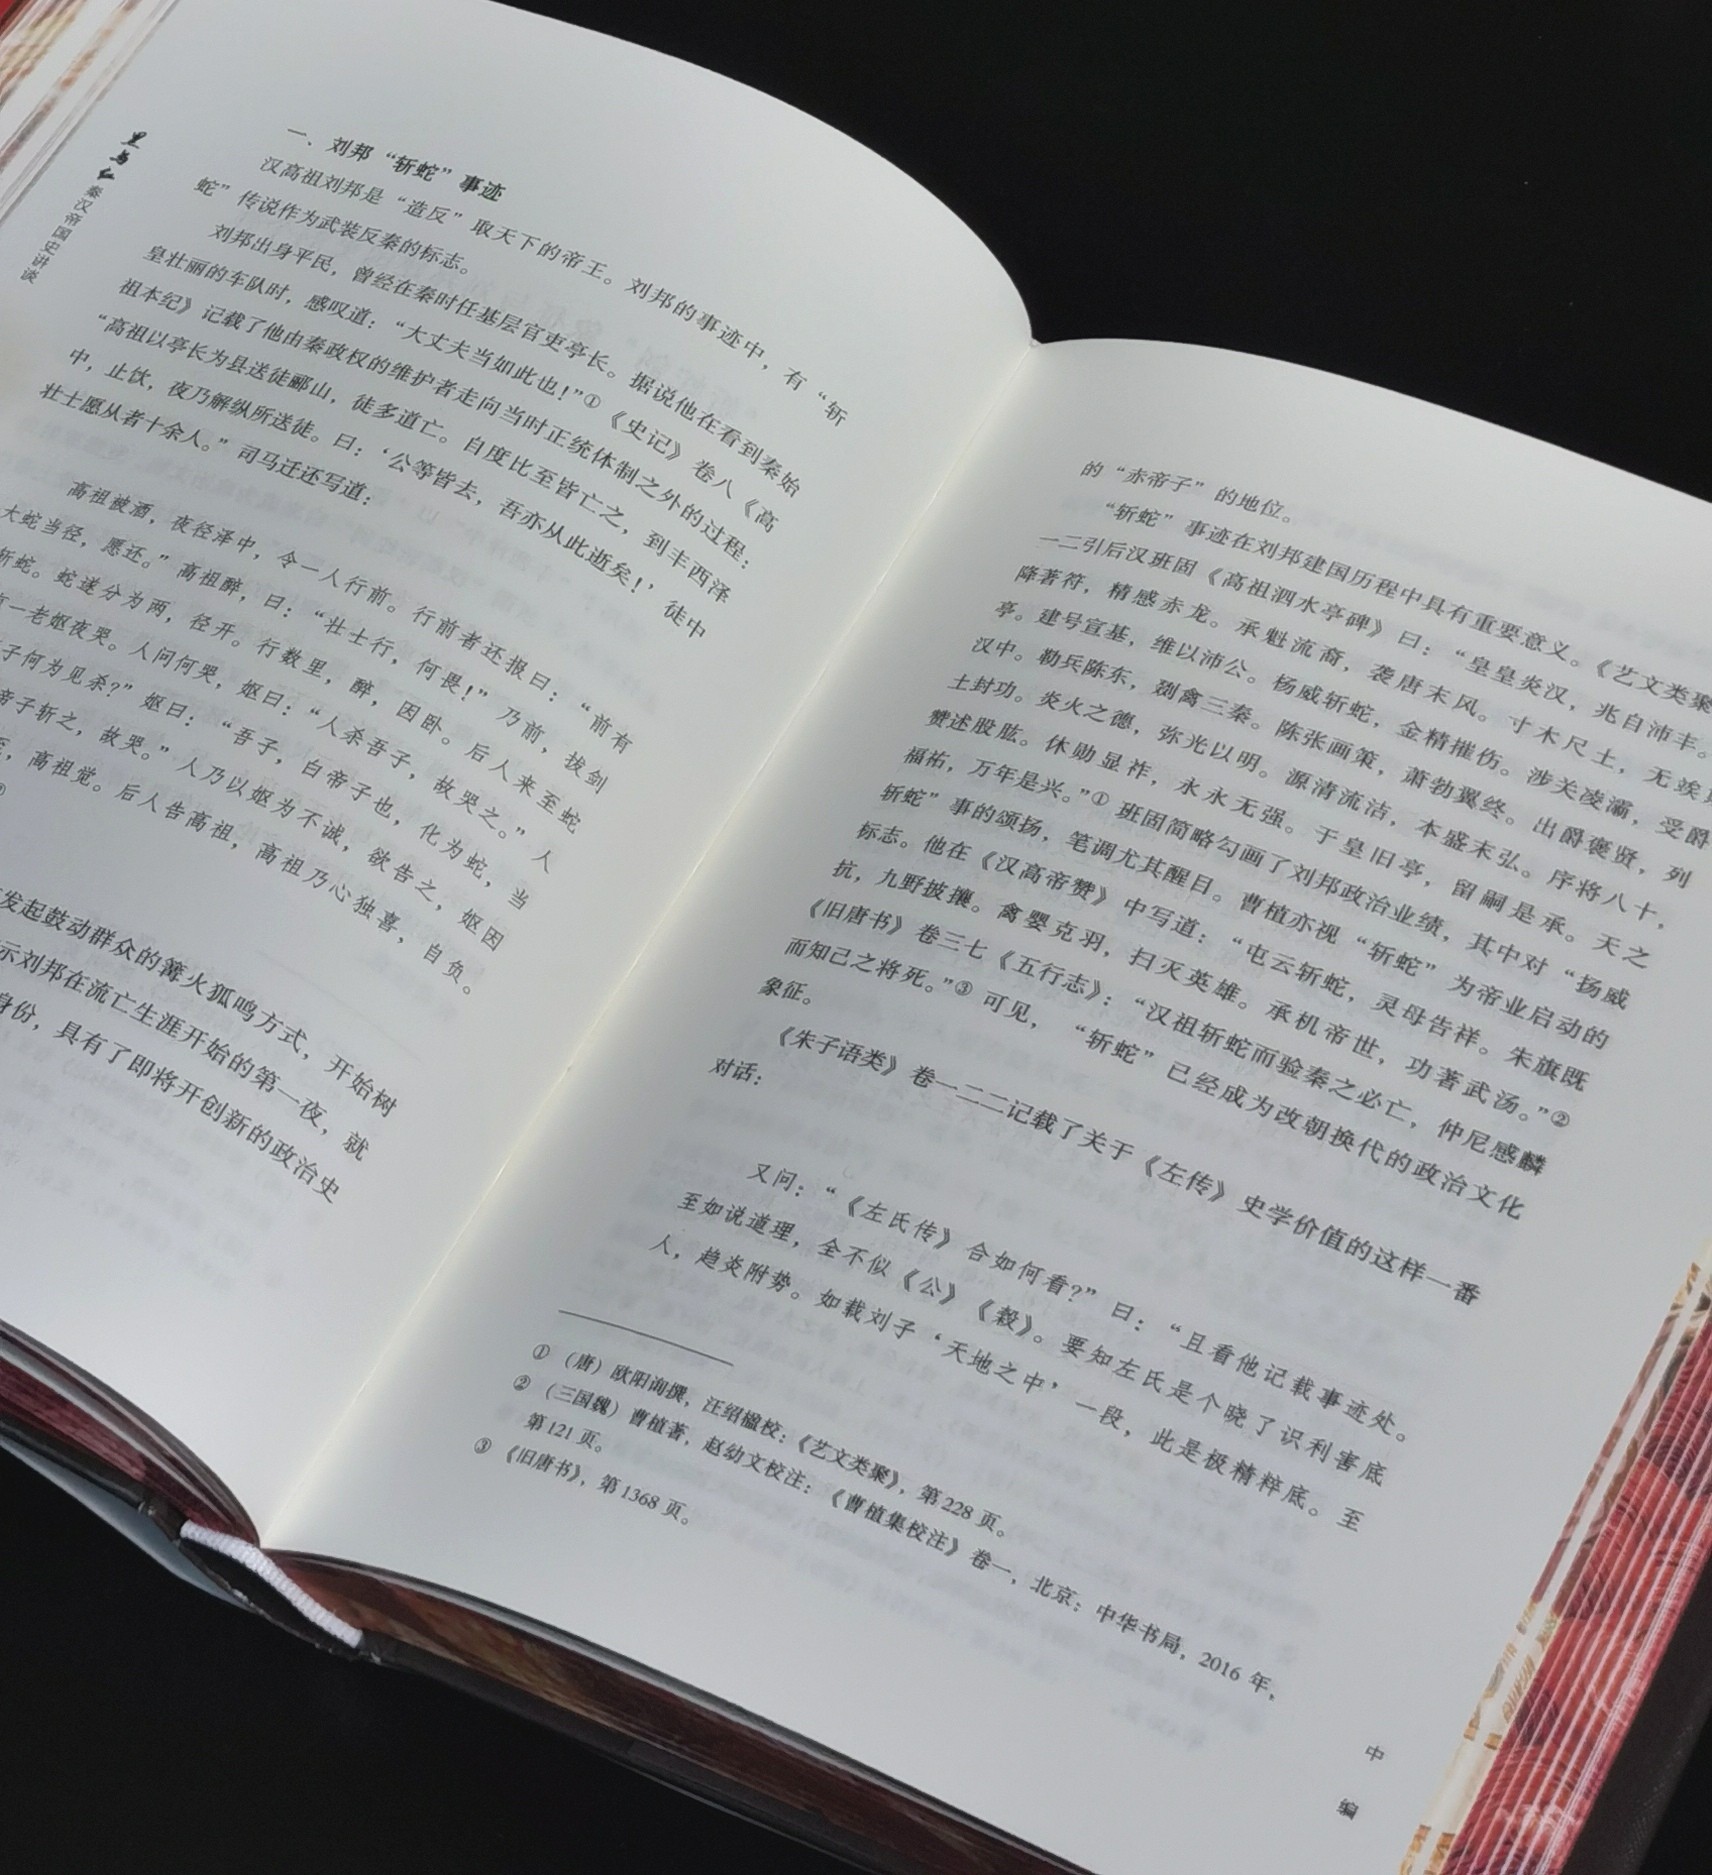 黑与红
秦汉帝国史讲谈
一、刘邦“斩蛇”事迹
汉高祖刘邦是“造反”取天下的帝王。刘邦的事迹中，有“斩
蛇”传说作为武装反秦的标志。
刘邦出身平民，曾经在秦时任基层官吏亭长。据说他在看到秦始
皇壮丽的车队时，感叹道：“大丈夫当如此也！”①《史记》卷八《高
祖本纪》记载了他由秦政权的维护者走向当时正统体制之外的过程：
“高祖以亭长为县送徒郦山，徒多道亡。自度比至皆亡之，到丰西泽
中，止饮，夜乃解纵所送徒。曰：‘公等皆去，吾亦从此逝矣！’徒中
壮士愿从者十余人。”司马迁还写道：
高祖被酒，夜径泽中，令一人行前。行前者还报曰：“前有
大蛇当径，愿还。”高祖醉，曰：“壮士行，何畏！”乃前，拔剑
斩蛇。蛇遂分为两，径开。行数里，醉，因卧。后人来至蛇
有一老妪夜哭。人问何哭，妪曰：“人杀吾子，故哭之。”人
子何为见杀？”妪曰：“吾子，白帝子也，化为蛇，当
帝子斩之，故哭。”人乃以妪为不诚，欲告之，妪因
，高祖觉。后人告高祖，高祖乃心独喜，自负。
发起鼓动群众的篝火狐鸣方式，开始树
示刘邦在流亡生涯开始的第一夜，就
身份，具有了即将开创新的政治史
的“赤帝子”的地位。
“斩蛇”事迹在刘邦建国历程中具有重要意义。《艺文类聚
一二引后汉班固《高祖泗水亭碑》曰：“皇皇炎汉，兆自沛丰。
降著符，精感赤龙。承魁流裔，袭唐末风。寸木尺土，无竢
亭。建号宣基，维以沛公。杨威斩蛇，金精摧伤。涉关凌灞，受爵
汉中。勒兵陈东，剟禽三秦。陈张画策，萧勃翼终。出爵褒贤，列
土封功。炎火之德，弥光以明。源清流洁，本盛末弘。序将八十，
赞述股肱。休勋显祚，永永无强。于皇旧亭，留嗣是承。天之
福祐，万年是兴。”①班固简略勾画了刘邦政治业绩，其中对“扬威
斩蛇”事的颂扬，笔调尤其醒目。曹植亦视“斩蛇”为帝业启动的
标志。他在《汉高帝赞》中写道：“屯云斩蛇，灵母告祥。朱旗既
抗，九野披攘。禽婴克羽，扫灭英雄。承机帝世，功著武汤。”②
《旧唐书》卷三七《五行志》：“汉祖斩蛇而验秦之必亡，仲尼感麟
而知己之将死。”③可见，“斩蛇”已经成为改朝换代的政治文化
象征。
《朱子语类》卷一二二记载了关于《左传》史学价值的这样一番
对话：
又问：“《左氏传》合如何看？”曰：“且看他记载事迹处。
至如说道理，全不似《公》《穀》。要知左氏是个晓了识利害底
人，趋炎附势。如载刘子‘天地之中’一段，此是极精粹底。至
① （唐）欧阳询撰，汪绍楹校：《艺文类聚》，第228页。
② （三国魏）曹植著，赵幼文校注：《曹植集校注》卷一，北京：中华书局，2016年，
第121页。
③ 《旧唐书》，第1368页。
中编